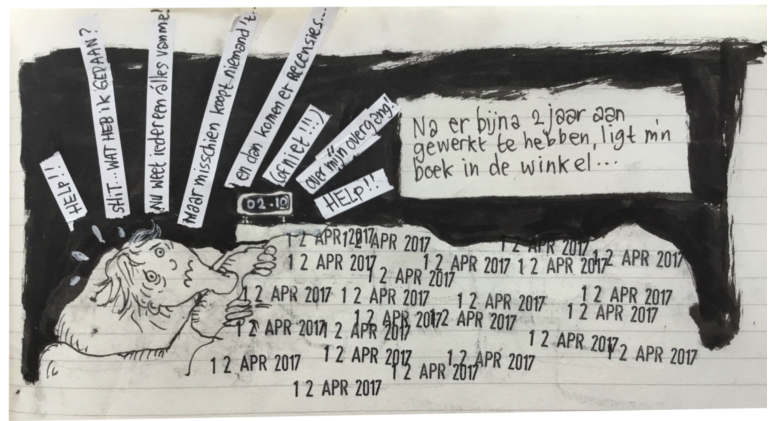 HELP!!
SHiT...WAT HEB iK GEDAAN?
NU weet iedereen álles van me!
Maar misschien koopt niemand 't..
en dan komen er RECENSiES...
(of niet!!!)
over mijn overgang!
HELP!!
02.10
Na er bijna 2 jaar aan
gewerkt te hebben, ligt m'n
boek in de winkel...
12 APR 2017 12 APR 2017 12 APR 2017
12 APR 2017 12 APR 2017 12 APR 2017 12 APR 2017
12 APR 2017
12 APR 2017 12 APR 2017 12 APR 2017 12 APR 2017
12 APR 2017 12 APR 2017 12 APR 2017
12 APR 2017 12 APR 2017
12 APR 2017
12 APR 2017 12 APR 2017 12 APR 2017 12 APR 2017
12 APR 2017
12 APR 2017